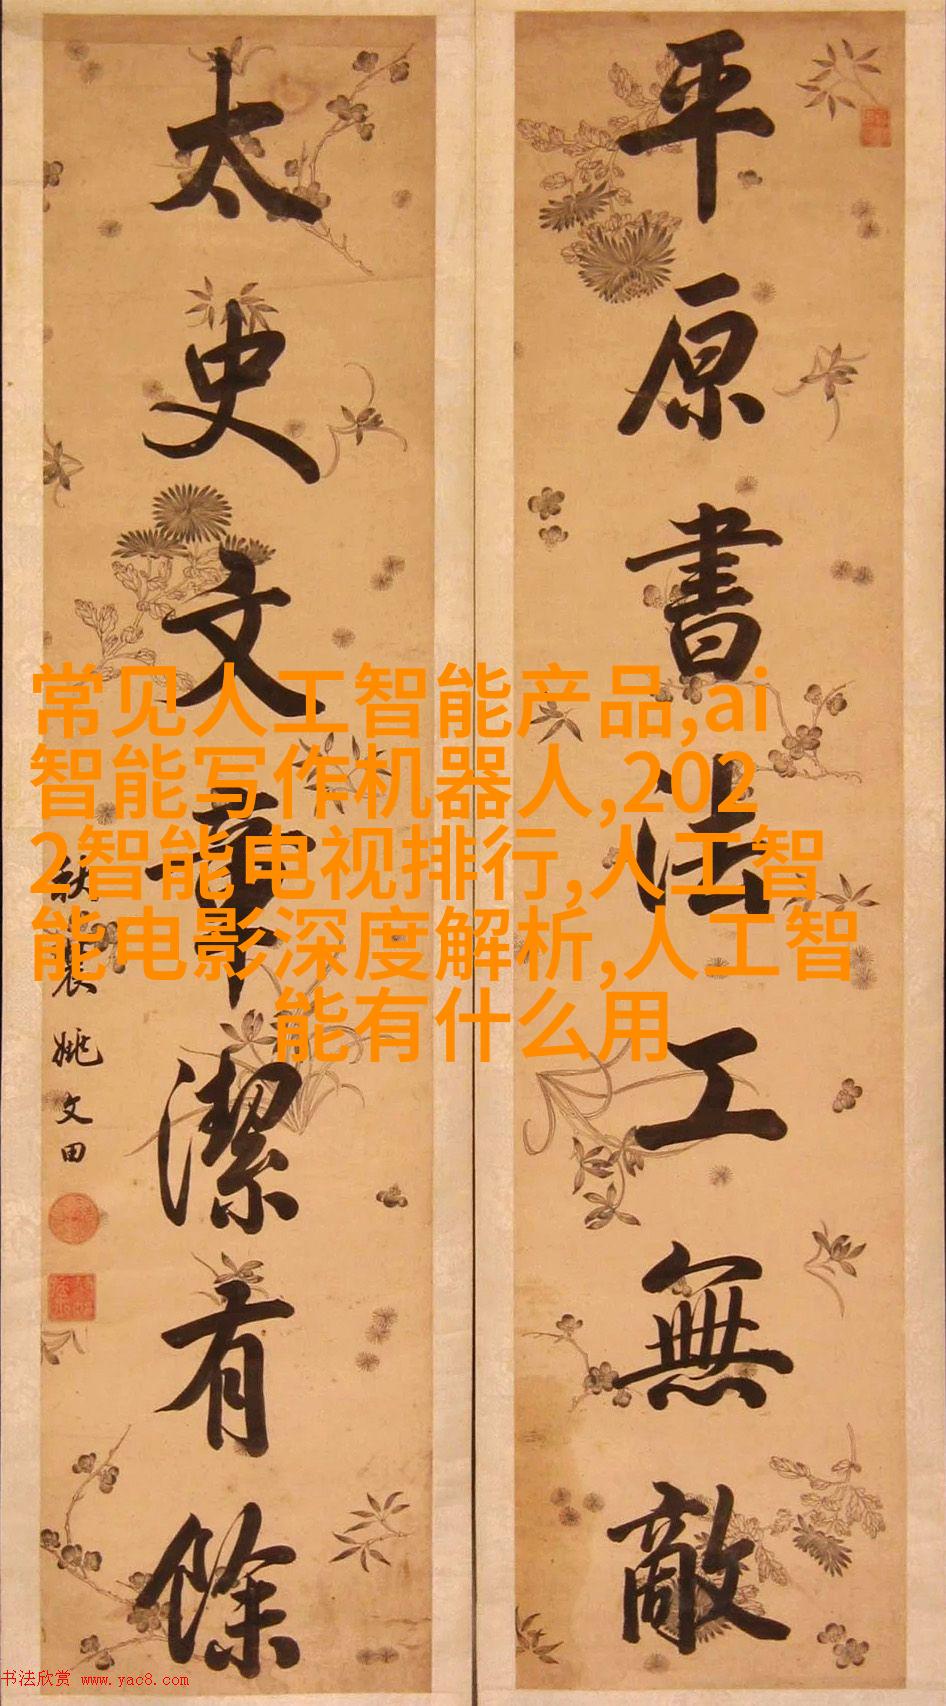 平原書法工無敵
太史文章潔有餘
姚文田
常见人工智能产品,ai
智能写作机器人,202
2智能电视排行,人工智
能电影深度解析,人工智
能有什么用
书法欣赏 www.yac8.com